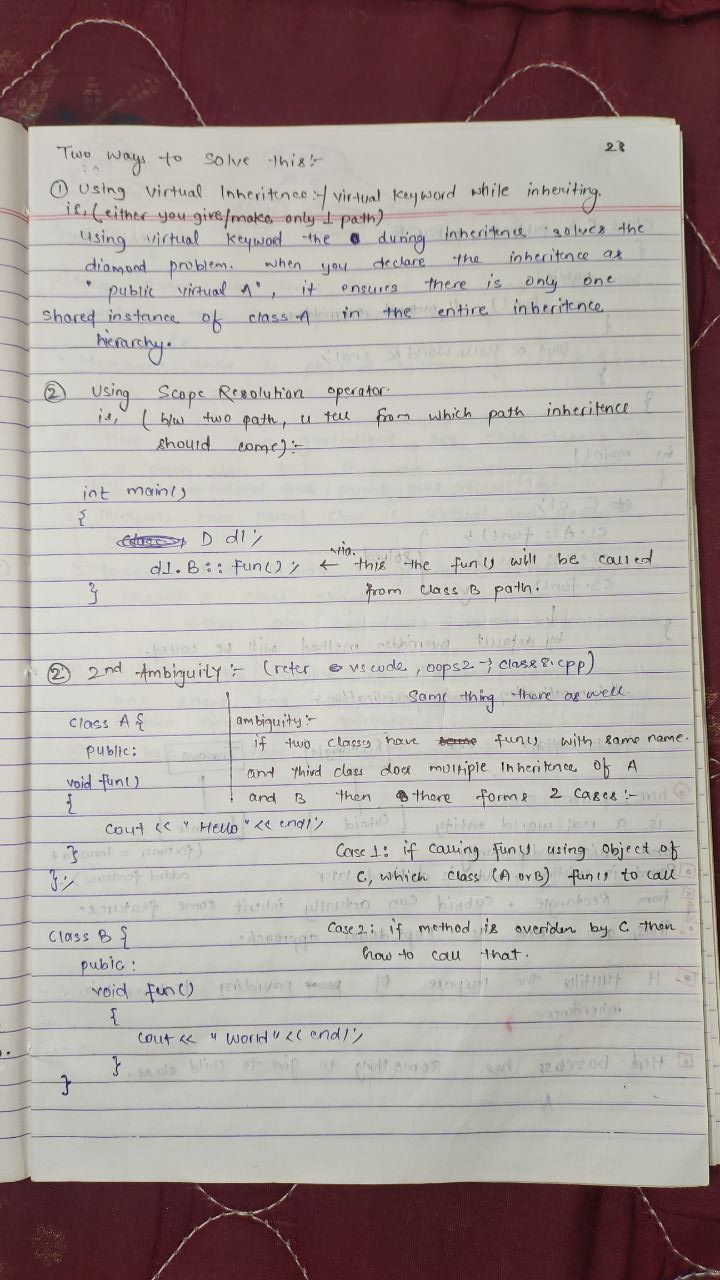 23
Two ways to solve this:-
① Using Virtual Inheritence:-/ virtual keyword while inheriting.
ie, (either you give/make only 1 path)
Using virtual keyword the during inheritence solves the
diamond problem. when you declare the inheritence as
"public virtual A", it ensures there is only one
shared instance of class A in the entire inheritence
hierarchy.
② Using Scope Resolution operator.
ie, ( b/w two path, u tell from which path inheritence
should come):-
int main()
{
D d1;
via.
d1.B:: fun(); ← this the fun() will be called
from class B path.
}
② 2nd Ambiguity :- (refer vs code, oops2 → class8.cpp)
same thing there as well.
class A {
public:
void fun()
{
cout << " Hello" << endl;
}
};
ambiguity:-
if two classes have fun() with same name.
and third class does multiple Inheritence of A
and B then there forms 2 cases:-
Case 1: if calling fun() using object of
C, which class (A or B) fun() to call
class B {
pubic :
void fun()
{
cout << " World" << endl;
}
}
Case 2: if method is overiden by C then
how to call that.